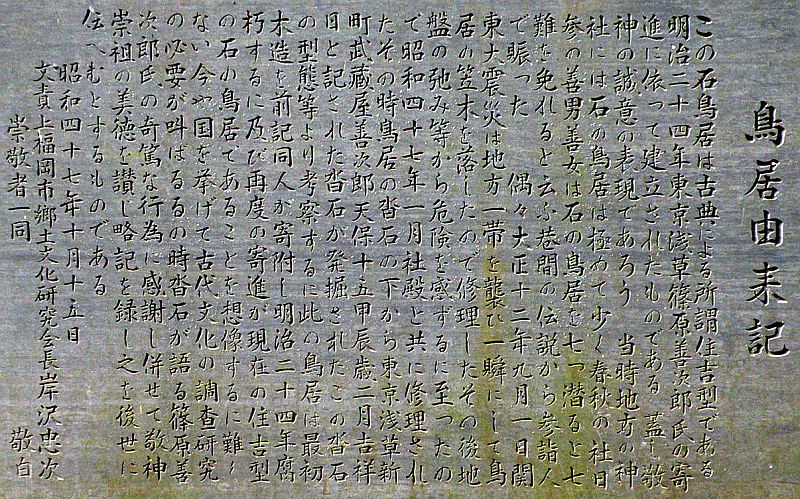 鳥居由来記
この石鳥居は古典による所謂住吉型である
明治二十四年東京浅草篠原善次郎氏の寄
進に依って建立されたものである 蓋し敬
神の誠意の表現であろう 当時地方の神
社には石の鳥居は極めて少く春秋の社日
参の善男善女は石の鳥居を七つ潜ると七
難を免れると云ふ巷間の伝説から参詣人
で賑った 偶々大正十二年九月一日関
東大震災は地方一帯を襲ひ一瞬にして鳥
居の笠木を落したので修理したその後地
盤の弛み等から危険を感ずるに至ったの
で昭和四十七年一月社殿と共に修理され
たその時鳥居の沓石の下から東京浅草新
町武蔵屋善次郎天保十五甲辰歳二月吉祥
日と記された沓石が発掘されたこの沓石
の型態等より考察するに此の鳥居は最初
木造を前記同人が寄附し明治二十四年腐
朽するに及び再度の寄進が現在の住吉型
の石の鳥居であることを想像するに難く
ない今や国を挙げて古代文化の調査研究
の必要が叫ばるるの時沓石が語る篠原善
次郎氏の奇篤な行為に感謝し併せて敬神
崇祖の美徳を讃じ略記を録し之を後世に
伝へむとするものである
昭和四十七年十月十五日
崇敬者一同
文責上福岡市郷土文化研究会長岸沢忠次 敬白